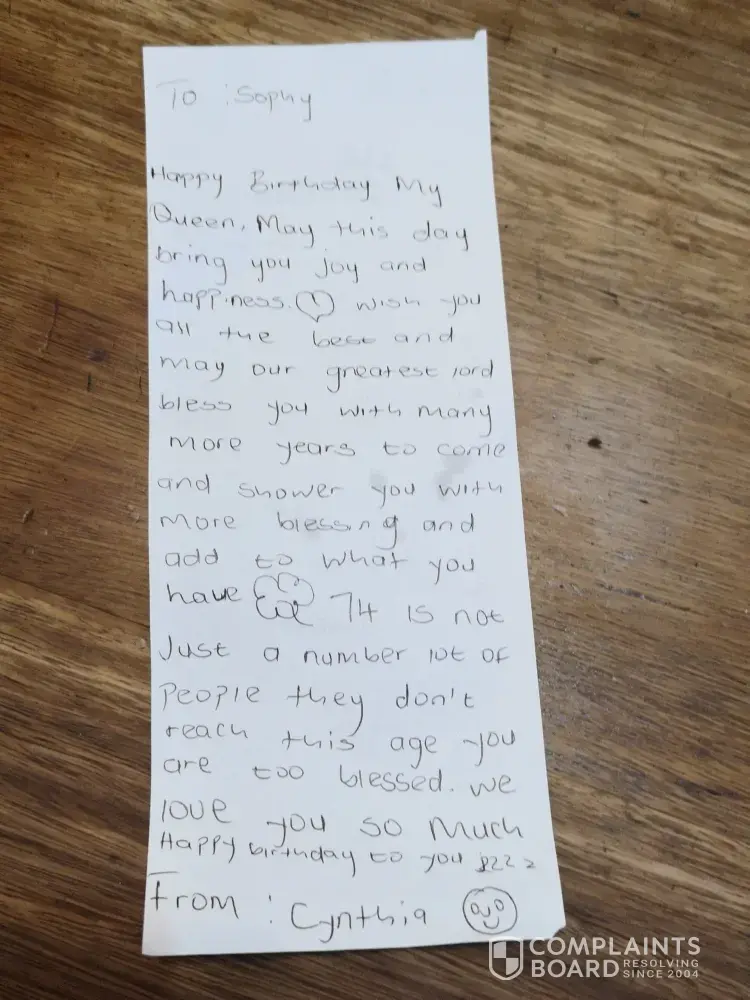 To : Sophy
Happy Birthday My
Queen, May this day
bring you joy and
happiness. wish you
all the best and
may our greatest lord
bless you with many
more years to come
and shower you with
more blessing and
add to what you
have 74 is not
Just a number lot of
people they don't
reach this age you
are too blessed. we
love you so much
Happy birthday to you
From : Cynthia
COMPLAINTS
BOARD RESOLVING
SINCE 2004